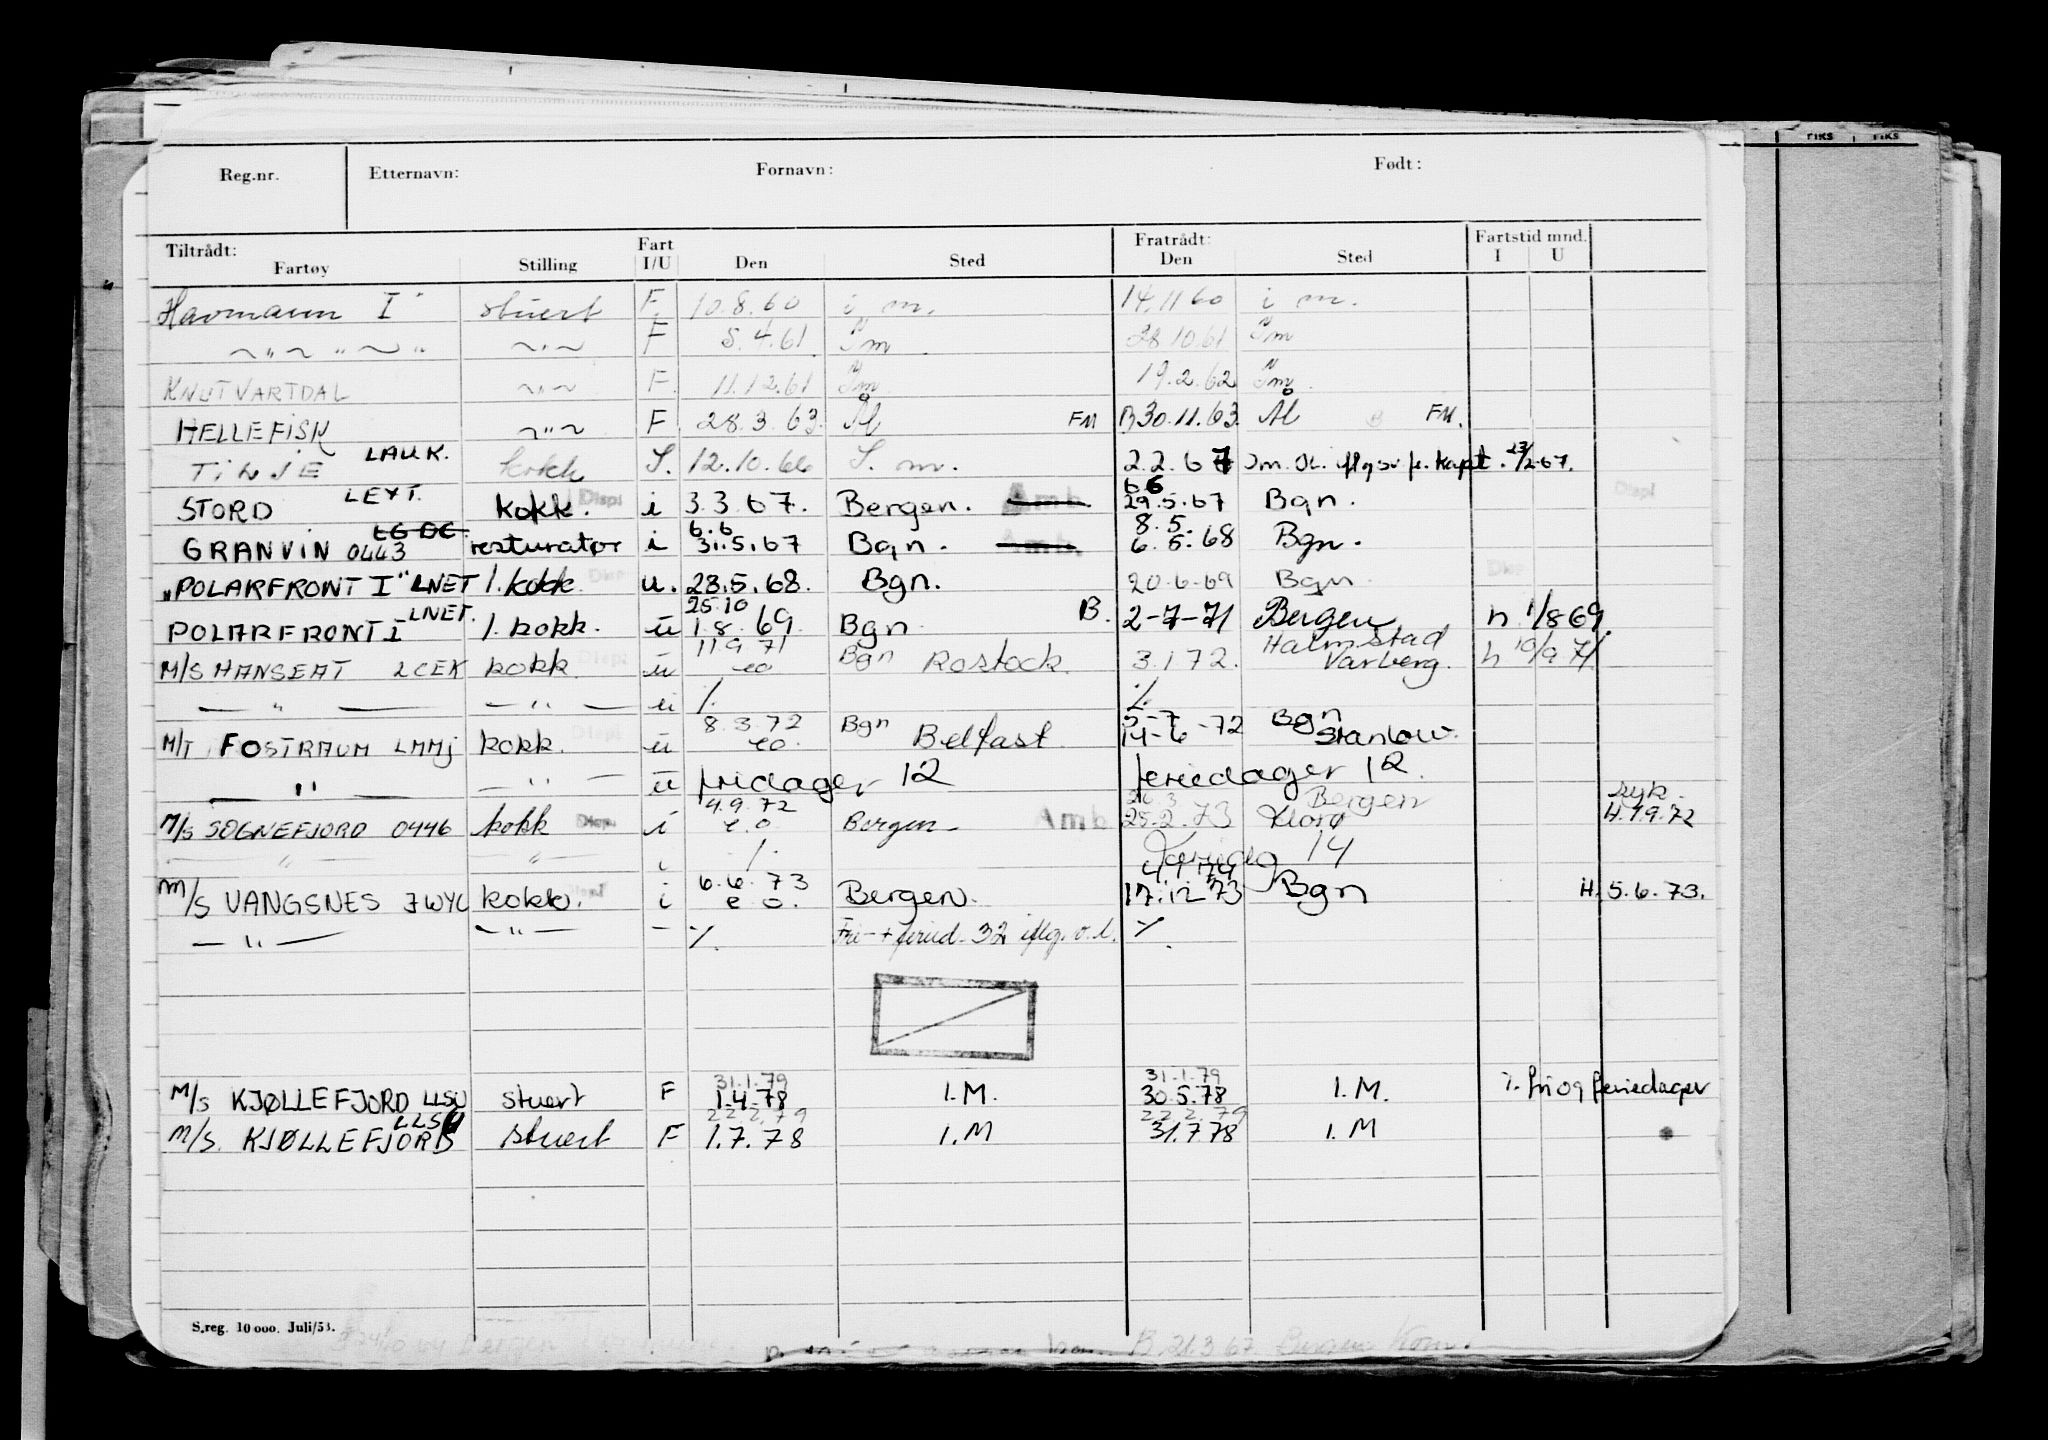 TIKS TIKS
Reg.nr. Etternavn: Fornavn: Født:
Tiltrådt: Fart Fratrådt: Fartstid mnd.
Fartøy Stilling I/U Den Sted Den Sted I U
Havmann I" stuert F. 10.8.60 i m. 14.11 60 i m.
~"~ " ~ " ~"~ F 5.4.61 Im 28.10.61 Im
KNUT VARTDAL ~"~ F. 11.12.61 Im 19.2.62 Im.
HELLEFISK ~"~ F 28.3.63. Ål FM B 30.11.63. Ål FM.
TILJE LAUK. kokk S. 12.10.66 S. m. 2.2.67 Im. iflg sv fr. kapt. 23/2.67.
6 6
STORD LEXT. kokk. Displ i 3.3.67. Bergen. Amb. 29.5.67 Bgn. Displ
LGDC 6.6 8.5.
GRANVIN 0443 resturatør i 31.5.67 Bgn. Amb. 6.5.68 Bgn.
"POLARFRONT I" LNET 1. kokk Disp u. 28.5.68. Bgn. 20.6.69 Bgn Disp
25.10
POLARFRONT I LNET. 1. kokk. u 1.8.69. Bgn B. 2-7-71 Bergen h 1/8 69
11.9.71 Bgn Halmstad
M/S HANSEAT LCEK kokk Displ u eo Rostock. 3.1.72. Varberg. h 10/9 71.
— " — — " — u /. /.
8.3.72 Bgn 5-7-72 Bgn
M/T FOSTRAUM LMMJ kokk. Displ u eo. Belfast 14-6 Stanlow.
— " — — " — u fridager 12 feriedager 12.
4.9.72 20.3 Bergen syk.
M/S SOGNEFJORD 0446 kokk Displ. i e.o Bergen Amb 25.2.73 Florø H.1.9.72
— " — — " — i /. Feriedg 14
6.6.73 4.1 74
M/S VANGSNES JWYL kokk. Displ i e o. Bergen. 17.12 73 Bgn H. 5.6.73.
— " — — " — - /. Fri-+ feried. 32 iflg. o.l. /.
31.1.79 31.1.79
M/S KJØLLEFJORD LLSU stuert F 1.4.78 I.M. 30.5.78 I.M. /. fri og feriedager
LLSU 22.2.79 22.2.79
M/S. KJØLLEFJORD stuert F 1.7.78 I.M 31.7 78 I.M
S.reg. 10 000. Juli/53.
Bergen B. 21.3 67 Bergen Kom.